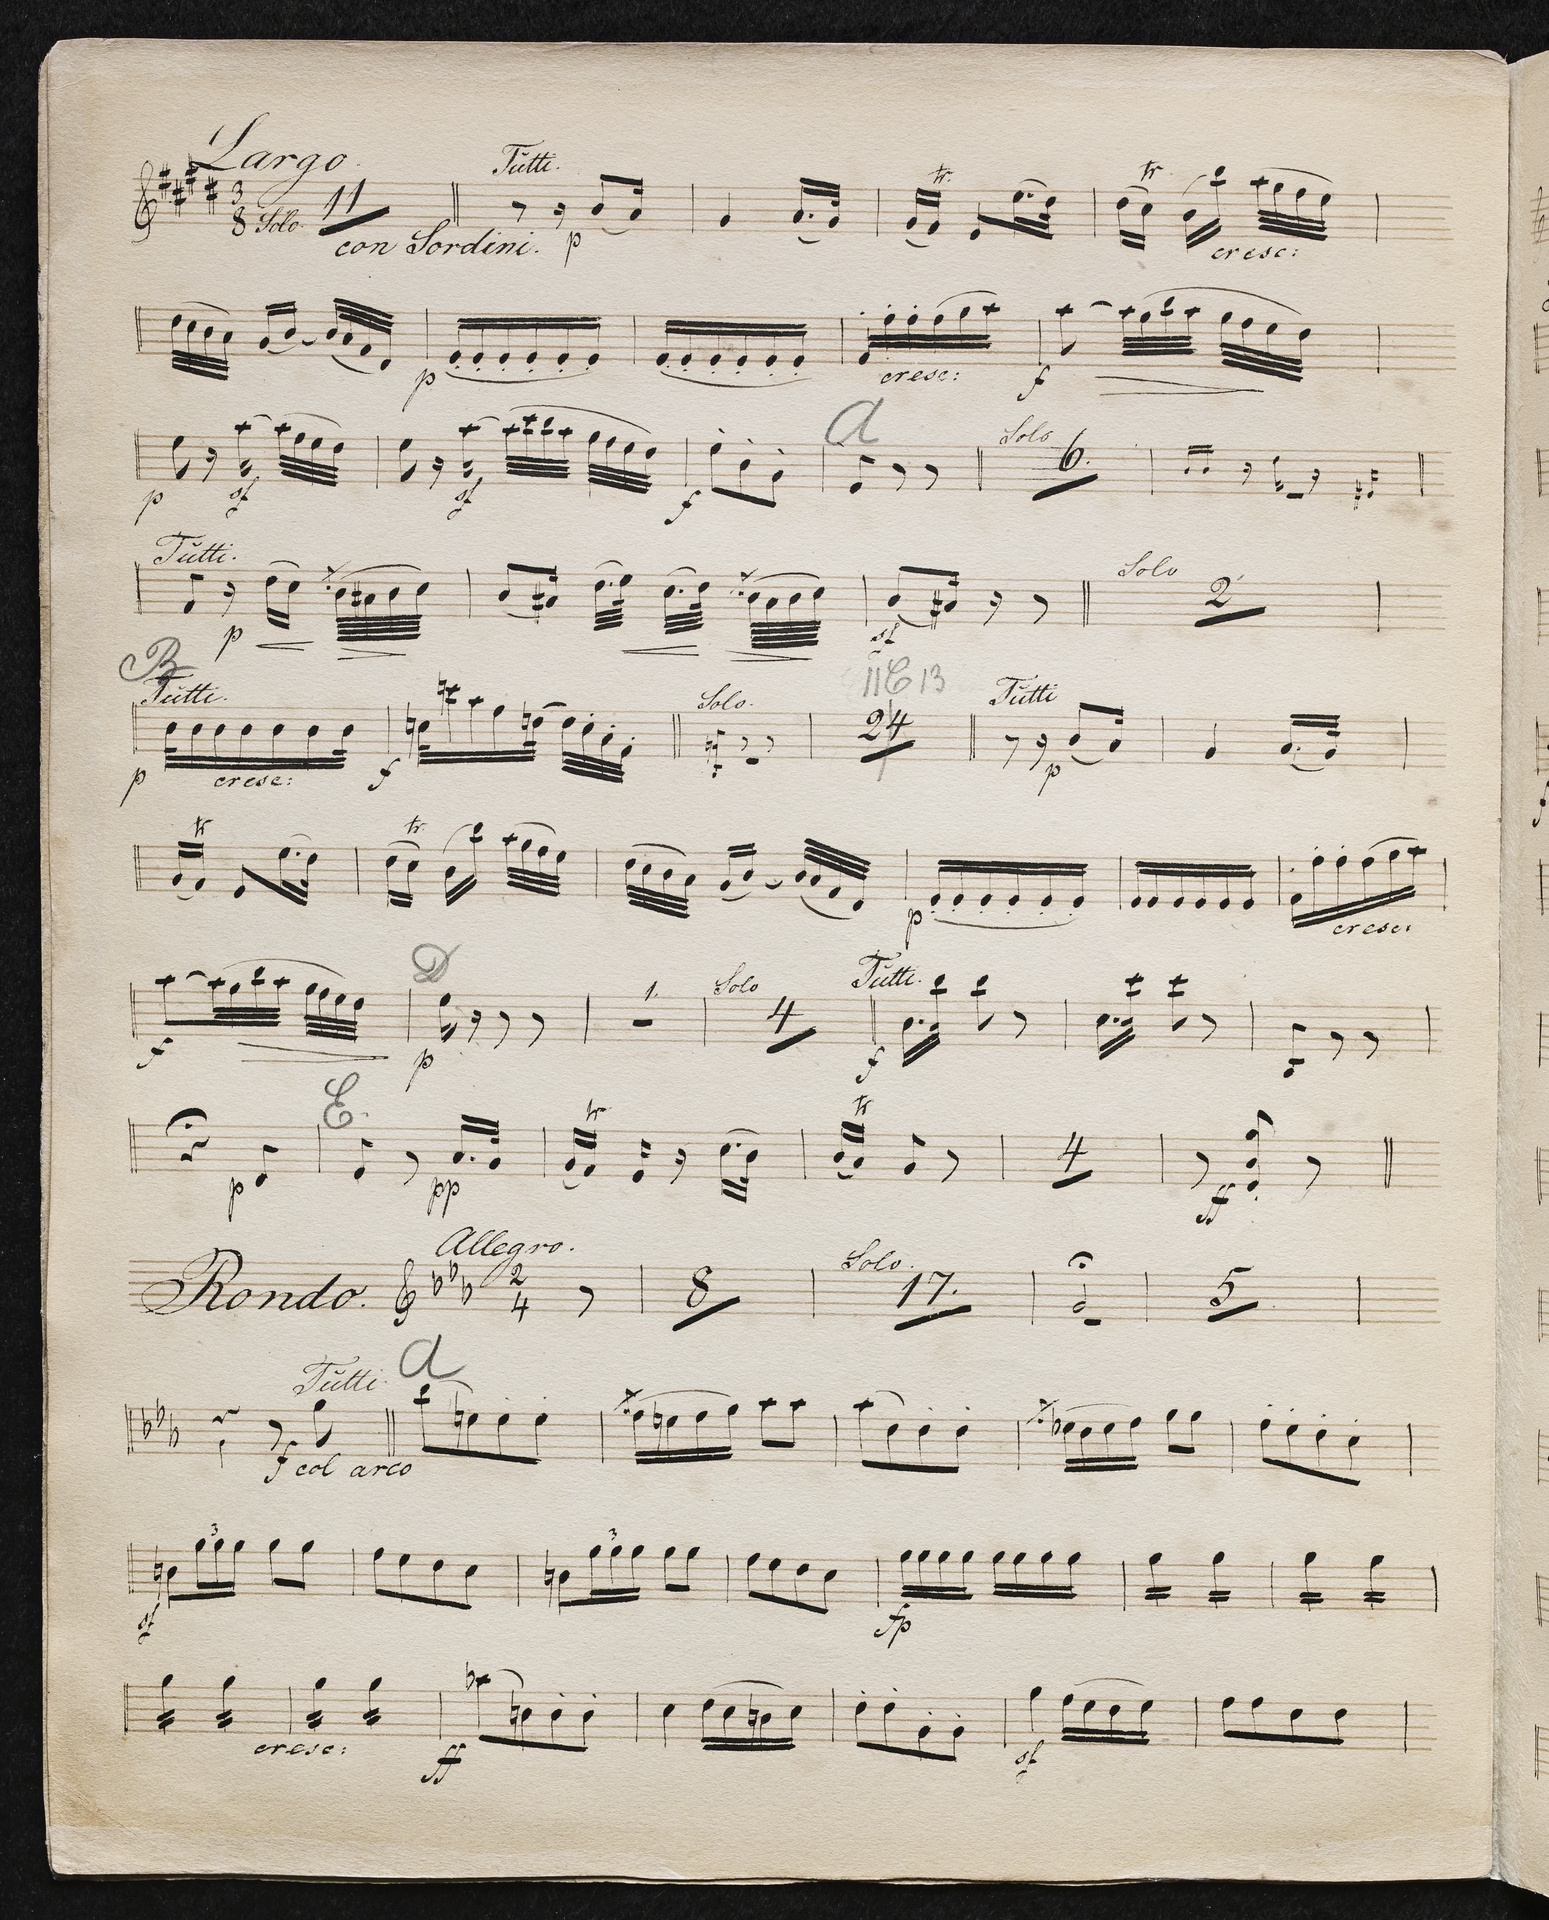 Largo.
Tutti. tr. tr.
3 8 Solo. 11
con Sordini. p cresc:
p cresc: f
A Solo 6.
p sf sf f
Tutti. Solo 2
p sf
B 11 C 13
Tutti. Solo. 24 Tutti
p cresc: f p
tr tr.
p cresc:
D 1. Solo 4 Tutti.
f p f
E. tr tr 4
p pp ff
Allegro.
Rondo. 2 4 8 Solo. 17. 5
Tutti A
f col arco
3 3
sf fp
cresc: ff sf